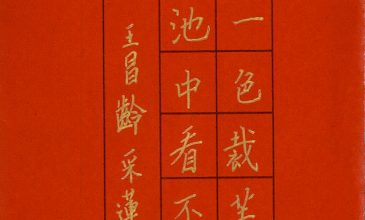 一色裁
池中看不
王昌齡采蓮